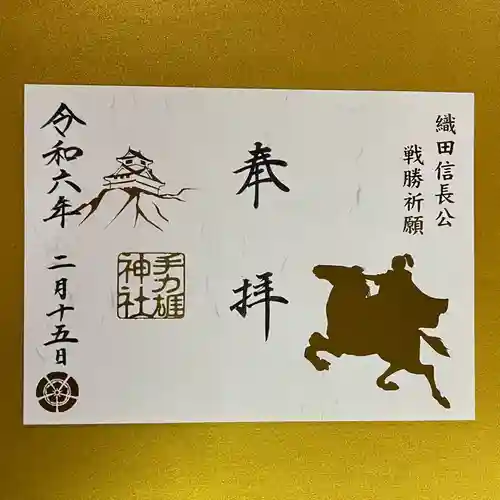 織田信長公
戦勝祈願
奉拝
手力雄
神社
令和六年 二月十五日